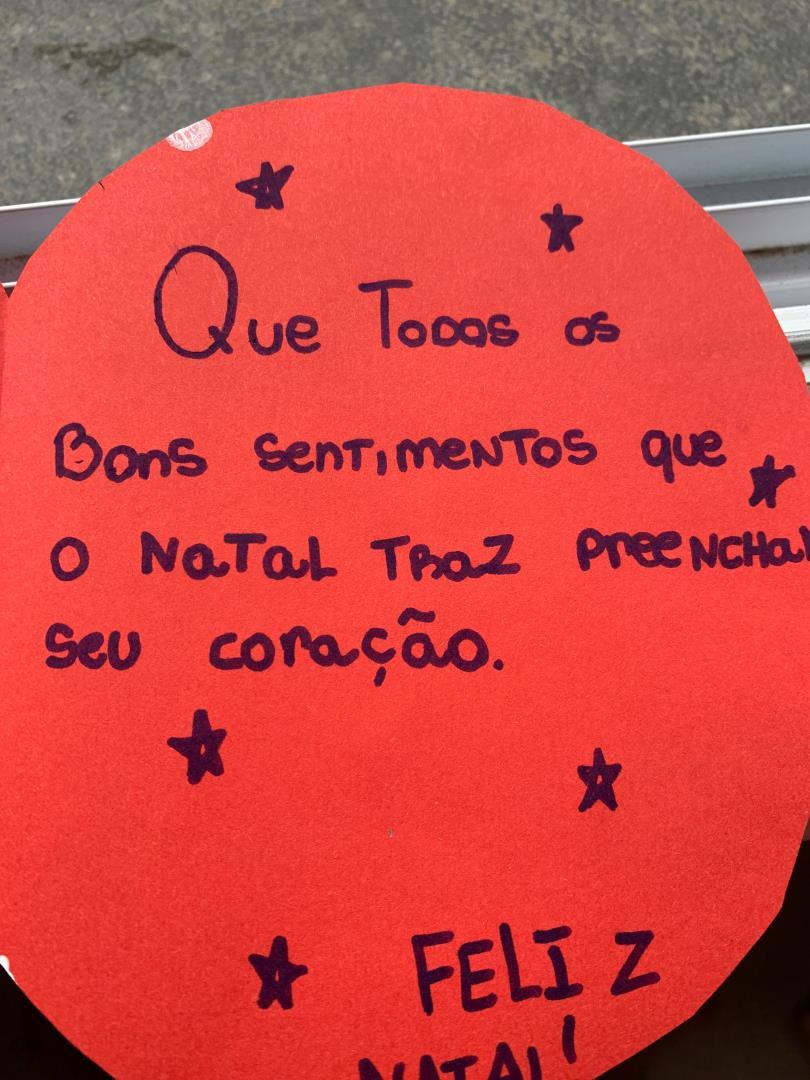 Que Todos os
Bons sentimentos que
o Natal traz preencham
seu coração.
FELIZ
NATAL!